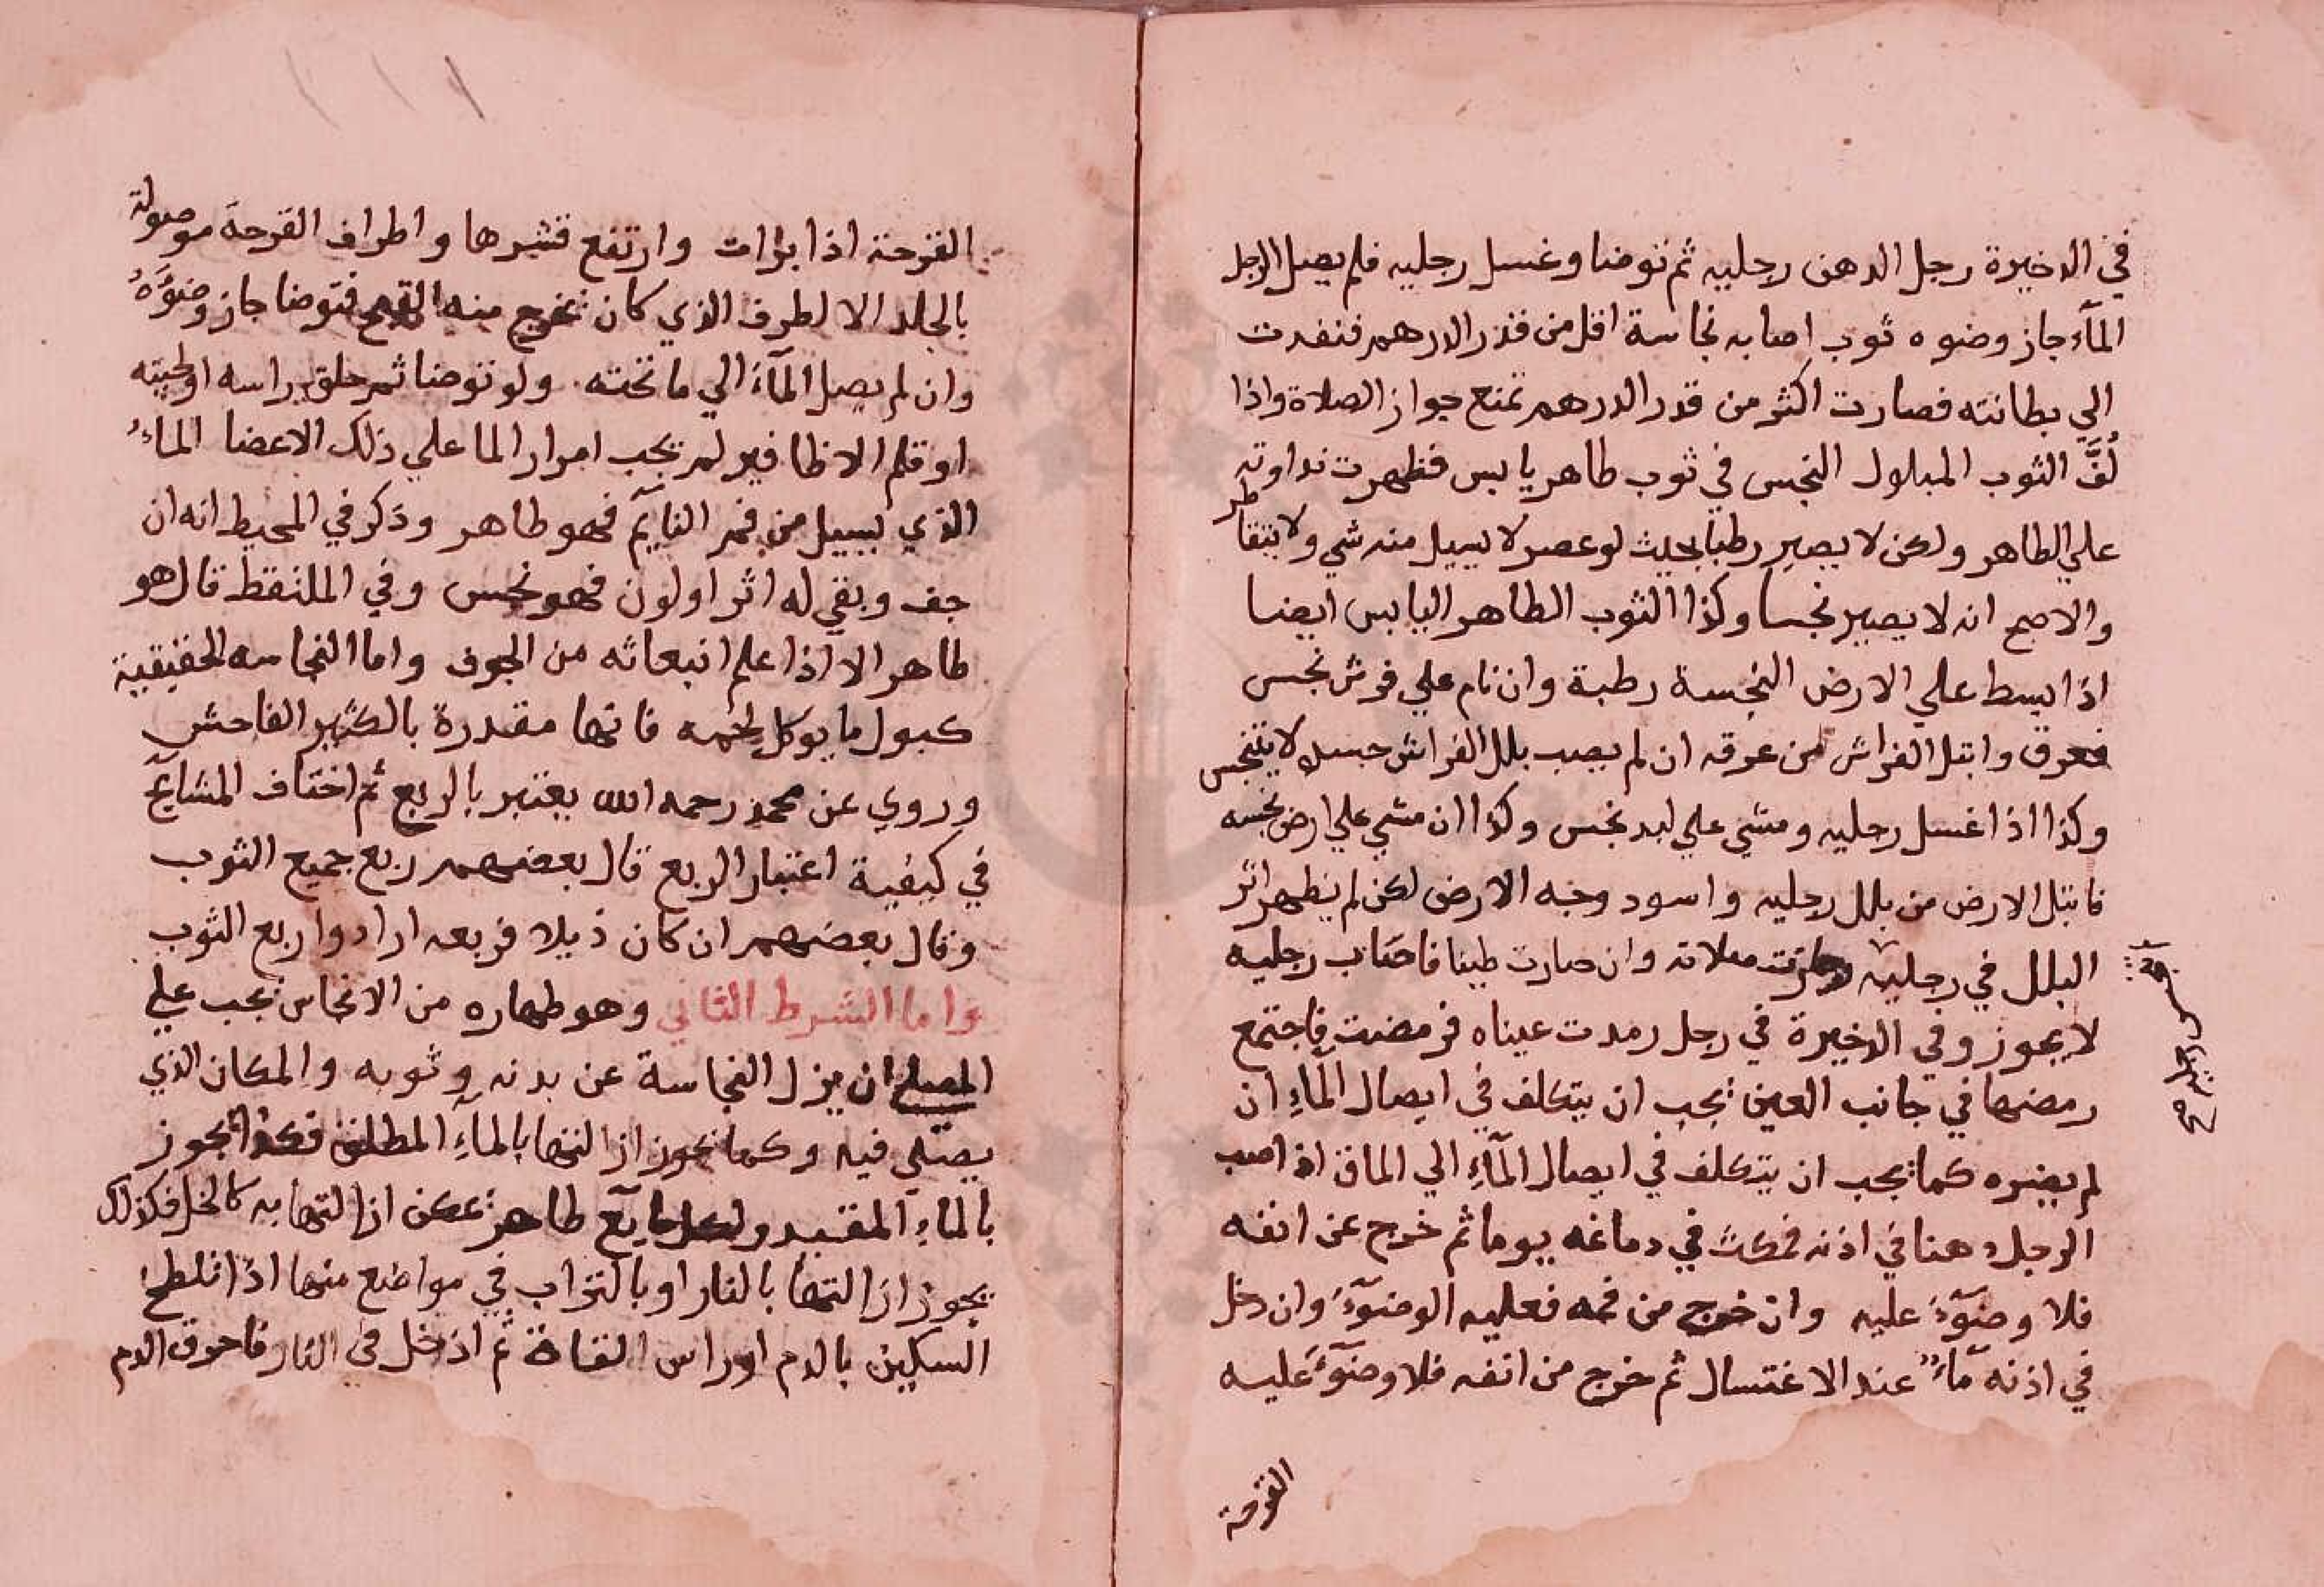 في الدخيرة رجل الدهن رجليه ثم توضا وغسل رجليه فلم يصل الرجل
المآء جاز وضوه ثوب اصابه نجاسة اقل من قدر الدرهم فنفدت
الي بطانته فصارت اكثر من قدر الدرهم تمنع جواز الصلاة واذا
لُفَّ الثوب المبلول النجس في ثوب طاهر يابس فظهرت نداوته
علي الطاهر ولكن لا يصير رطبا بحيث لو عصر لا يسيل منه شي ولا يتقاطر
والاصح انه لا يصير نجسا وكذا الثوب الطاهر اليابس ايضا
اذا بسط علي الارض النجسة رطبة وان نام علي فرش نجس
فعرق وابتل الفراش من عرقه ان لم يصب بلل الفراش جسده لا يتنجس
وكذا اذا غسل رجليه ومشي علي لبد نجس وكذا ان مشي علي ارض نجسه
فابتل الارض من بلل رجليه واسود وجه الارض لكن لم يظهر اثر
البلل في رجليه جازت صلاته وان صارت طينا فاصاب رجليه
لا يجوز وفي الدخيرة في رجل رمدت عيناه فرمضت فاجتمع
رمضها في جانب العين يجب ان يتكلف في ايصال المآءِ ان
لم يضره كما يجب ان يتكلف في ايصال المآءِ الي الماق اذا صب
الرجل دهنا في اذنه فمكث في دماغه يوما ثم خرج عن انفه
فلا وضوٓءَ عليه وان خرج من فمه فعليه الوضوٓءُ وان دخل
في اذنه مآءٌ عند الاغتسال ثم خرج من انفه فلا وضوٓءَ عليه
القرحة
القرحة اذا برات وارتفع قشرها واطراف القرحة موصولة
بالجلد الا لطرف الذي كان يخرج منه القيح فتوضا جاز وضوَٓهُ
وان لم يصل المآءَ الي ما تحته ولو توضا ثم حلق راسه او لحيته
او قلم الاظافير لم يجب امرار الما علي ذلك الاعضا الماءُ
الذي يسيل من فم النآيم فهو طاهر وذكر في المحيط انه ان
جف وبقي له اثر او لون فهو نجس وفي الملتقط قال هو
طاهر الا اذا علم انبعاثه من الجوف واما النجاسه الحقيقية
كبول ما يوكل لحمه فانها مقدرة بالكثير الفاحش
وروي عن محمد رحمه الله يعتبر بالربع ثم اختلف المشايخ
في كيفية اعتبار الربع قال بعضهم ربع جميع الثوب
وقال بعضهم ان كان ذيلا فربعه ارادوا ربع الثوب
واما الشرط الثاني وهو طهاره من الانجاس يجب علي
المصلي ان يزل النجاسة عن بدنه وثوبه والمكان الذي
يصلي فيه وكما يجوز ازالتها بالماءِ المطلق فكذا يجوز
بالماءِ المقيد ولكل مايٓع طاهر يمكن ازالتها به كالخل فكذلك
يجوز ازالتها بالنار او بالتراب في مواضع منها اذا تلطخ
السكين بالدم او راس الشاة ثم ادخل في النار فاحرق الدم